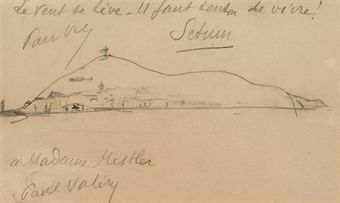 Le vent se lève - Il faut tenter de vivre!
Paul
Setium
à Madame Mistler
Paul Valéry